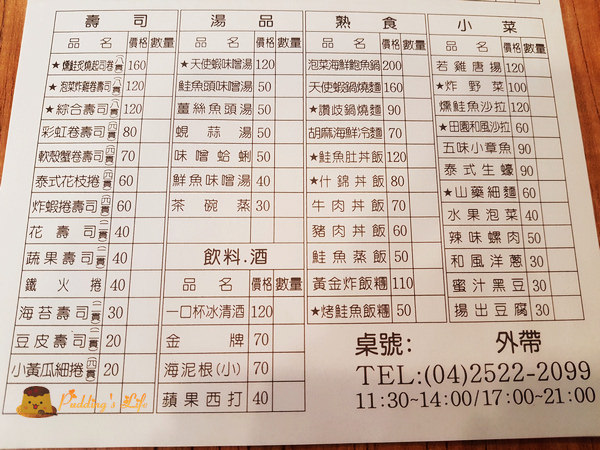 壽司
品名 價格 數量
★燻鮭炙燒起司卷(八貫) 160
★泡菜炸雞卷壽司(八貫) 120
★綜合壽司(八貫) 120
彩虹卷壽司(四貫) 80
軟殼蟹卷壽司(四貫) 70
泰式花枝捲(四貫) 60
炸蝦捲壽司(四貫) 60
花壽司(四貫) 40
蔬果壽司(四貫) 40
鐵火捲 40
海苔壽司(二貫) 30
豆皮壽司(二貫) 20
小黃瓜細捲(四貫) 20
湯品
品名 價格 數量
★天使蝦味噌湯 120
鮭魚頭味噌湯 50
薑絲魚頭湯 50
蜆蒜湯 50
味噌蛤蜊 50
鮮魚味噌湯 40
茶碗蒸 30
飲料.酒
品名 價格 數量
一口杯冰清酒 120
金牌 70
海泥根(小) 70
蘋果西打 40
熟食
品名 價格 數量
泡菜海鮮鮑魚鍋 200
天使蝦鍋燒麵 160
★讚岐鍋燒麵 90
胡麻海鮮冷麵 70
★鮭魚肚丼飯 120
★什錦丼飯 80
牛肉丼飯 70
豬肉丼飯 60
鮭魚蒸飯 50
黃金炸飯糰 110
★烤鮭魚飯糰 50
小菜
品名 價格 數量
若雞唐揚 120
★炸野菜 100
燻鮭魚沙拉 120
★田園和風沙拉 60
五味小章魚 90
泰式生蠔 90
★山藥細麵 60
水果泡菜 40
辣味螺肉 50
和風洋蔥 30
蜜汁黑豆 30
揚出豆腐 30
桌號: 外帶
TEL:(04)2522-2099
11:30~14:00/17:00~21:00
Pudding's Life